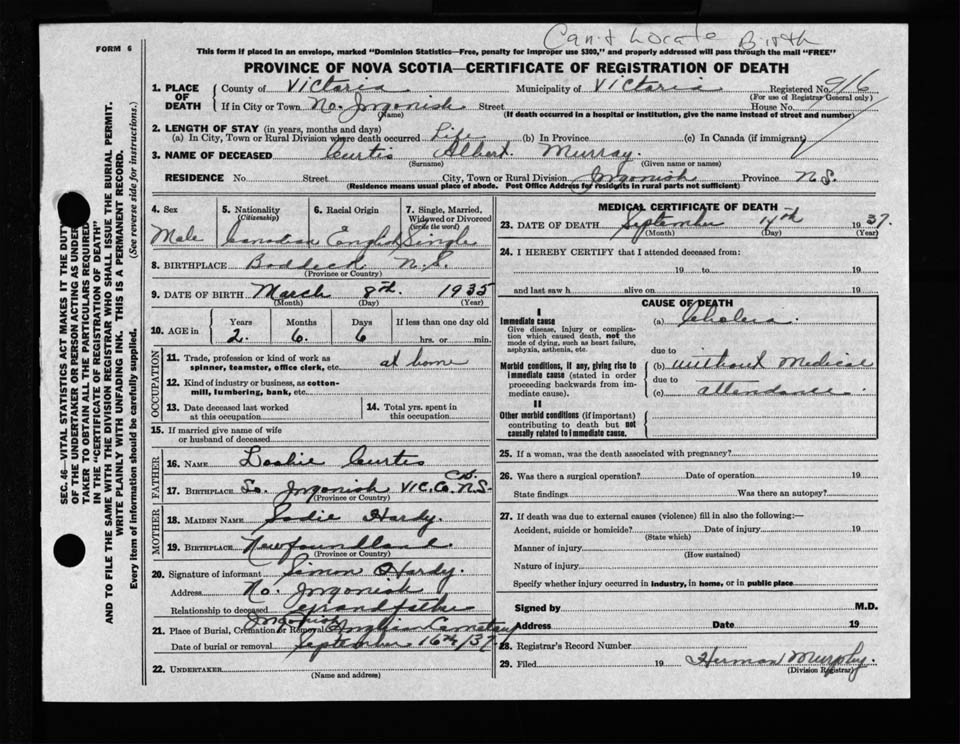 Can't Locate Birth
FORM 6
This form if placed in an envelope, marked "Dominion Statistics—Free, penalty for improper use $300," and properly addressed will pass through the mail "FREE"
PROVINCE OF NOVA SCOTIA—CERTIFICATE OF REGISTRATION OF DEATH
1. PLACE OF DEATH County of Victoria Municipality of Victoria Registered No. 916
(For use of Registrar General only)
If in City or Town No. Ingonish Street House No.
(Name) (If death occurred in a hospital or institution, give the name instead of street and number)
2. LENGTH OF STAY (in years, months and days)
(a) In City, Town or Rural Division where death occurred Life (b) In Province (c) In Canada (if immigrant)
3. NAME OF DECEASED Curtis Albert Murray.
(Surname) (Given name or names)
RESIDENCE No. Street City, Town or Rural Division Ingonish Province N.S.
(Residence means usual place of abode. Post Office Address for residents in rural parts not sufficient)
4. Sex 5. Nationality (Citizenship) 6. Racial Origin 7. Single, Married, Widowed or Divorced (write the word)
Male Canadian English Single
8. BIRTHPLACE Baddeck N.S.
(Province or Country)
9. DATE OF BIRTH March 8th. 1935
(Month) (Day) (Year)
10. AGE in Years Months Days If less than one day old
2. 6. 6 hrs. or min.
OCCUPATION
11. Trade, profession or kind of work as spinner, teamster, office clerk, etc. at home
12. Kind of industry or business, as cotton-mill, lumbering, bank, etc.
13. Date deceased last worked at this occupation
14. Total yrs. spent in this occupation
15. If married give name of wife or husband of deceased
FATHER
16. NAME Curtis
17. BIRTHPLACE So. Ingonish Vic. Co. N.S.
(Province or Country)
MOTHER
18. MAIDEN NAME Sadie Hardy.
19. BIRTHPLACE Newfoundland
(Province or Country)
20. Signature of informant Simon Hardy.
Address No. Ingonish
Relationship to deceased grandfather
21. Place of Burial, Cremation or Removal Ingonish Anglican Cemetary
Date of burial or removal September 16th/37.
22. UNDERTAKER
(Name and address)
MEDICAL CERTIFICATE OF DEATH
23. DATE OF DEATH September 14th 1937.
(Month) (Day) (Year)
24. I HEREBY CERTIFY that I attended deceased from:
19 to 19
and last saw h alive on 19
CAUSE OF DEATH
I
Immediate cause (a) Cholera.
Give disease, injury or complication which caused death, not the mode of dying, such as heart failure, asphyxia, asthenia, etc.
due to
Morbid conditions, if any, giving rise to immediate cause (stated in order proceeding backwards from immediate cause).
(b) without Medical
due to
(c) attendance.
II
Other morbid conditions (if important) contributing to death but not causally related to immediate cause.
25. If a woman, was the death associated with pregnancy?
26. Was there a surgical operation? Date of operation 19
State findings Was there an autopsy?
27. If death was due to external causes (violence) fill in also the following:—
Accident, suicide or homicide? Date of injury 19
(State which)
Manner of injury
(How sustained)
Nature of injury
Specify whether injury occurred in industry, in home, or in public place
Signed by M.D.
Address Date 19
28. Registrar's Record Number
29. Filed 19 Herman Murphy.
(Division Registrar)
SEC. 46—VITAL STATISTICS ACT MAKES IT THE DUTY
OF THE UNDERTAKER OR PERSON ACTING AS UNDERTAKER TO OBTAIN ALL THE PARTICULARS REQUIRED
IN THE "CERTIFICATE OF REGISTRATION OF DEATH"
AND TO FILE THE SAME WITH THE DIVISION REGISTRAR WHO SHALL ISSUE THE BURIAL PERMIT.
WRITE PLAINLY WITH UNFADING INK. THIS IS A PERMANENT RECORD.
Every item of information should be carefully supplied. (See reverse side for instructions.)